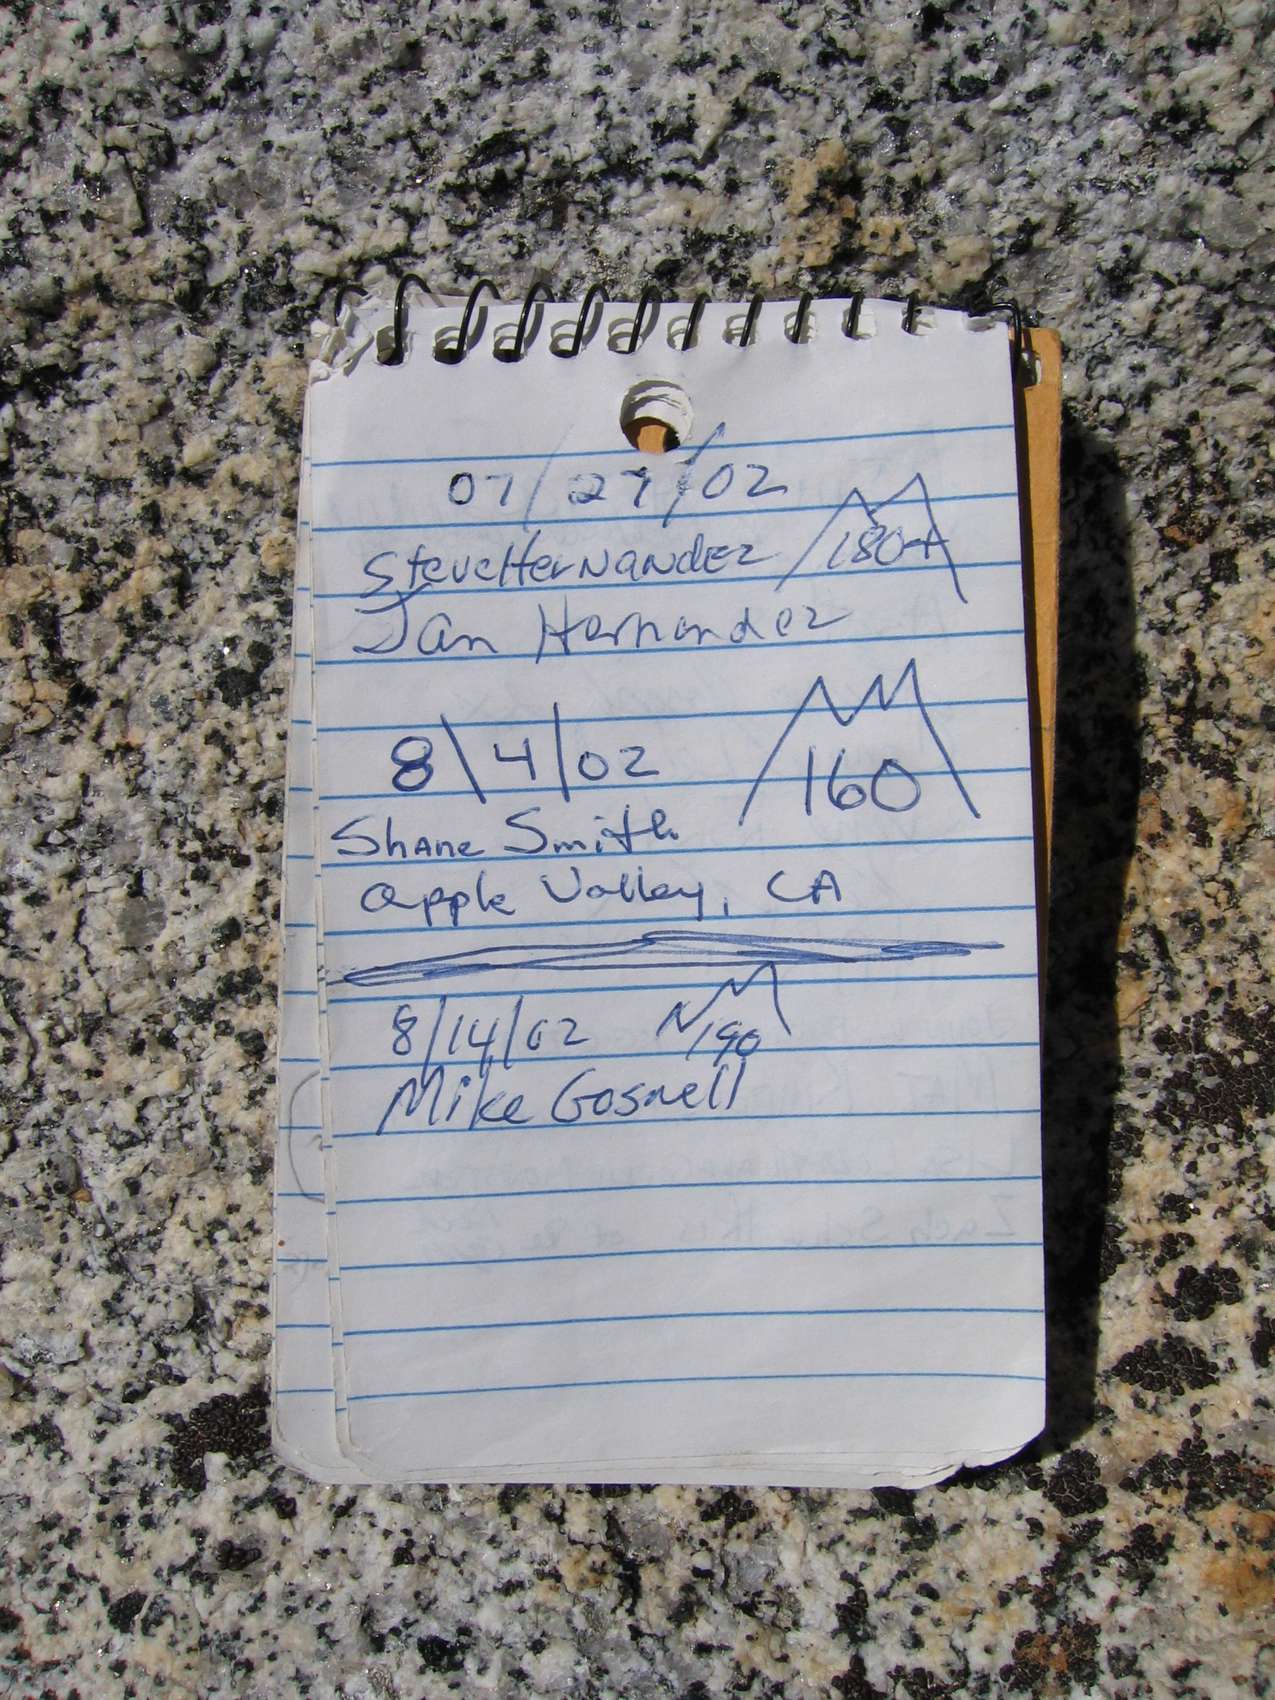 07/27/02
Steve Hernandez 180+
Jan Hernandez
8\4/02 160
Shane Smith
Apple Valley, CA
8/14/02 190
Mike Gosnell